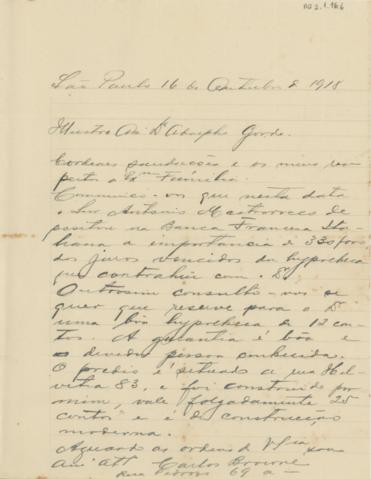 São Paulo 16 de Outubro de 1918
Illustre Am. Dr. Adolpho Gordo.
Cordeaes saudacções e os meus res-
peitos a Exma Familia.
Communico-vos que nesta data
o Snr Antonio de
positou na Banca Franceza Ita-
liana a importancia de
dos juros vencidos da hypotheca
que contrahiu com o Dr
Outrosim consulto-vos se
quer que reserve para o Dr
uma bôa hypotheca de 12 con-
tos. A garantia é bôa e
o devedor pessôa conhecida.
O predio é situado a rua Hel-
vetia 83, e foi construido por
mim, vale folgadamente 25
contos e é de construcção
moderna.
Aguardo as ordens de V. Sia sou
Am Att Carlos
Rua 69 A